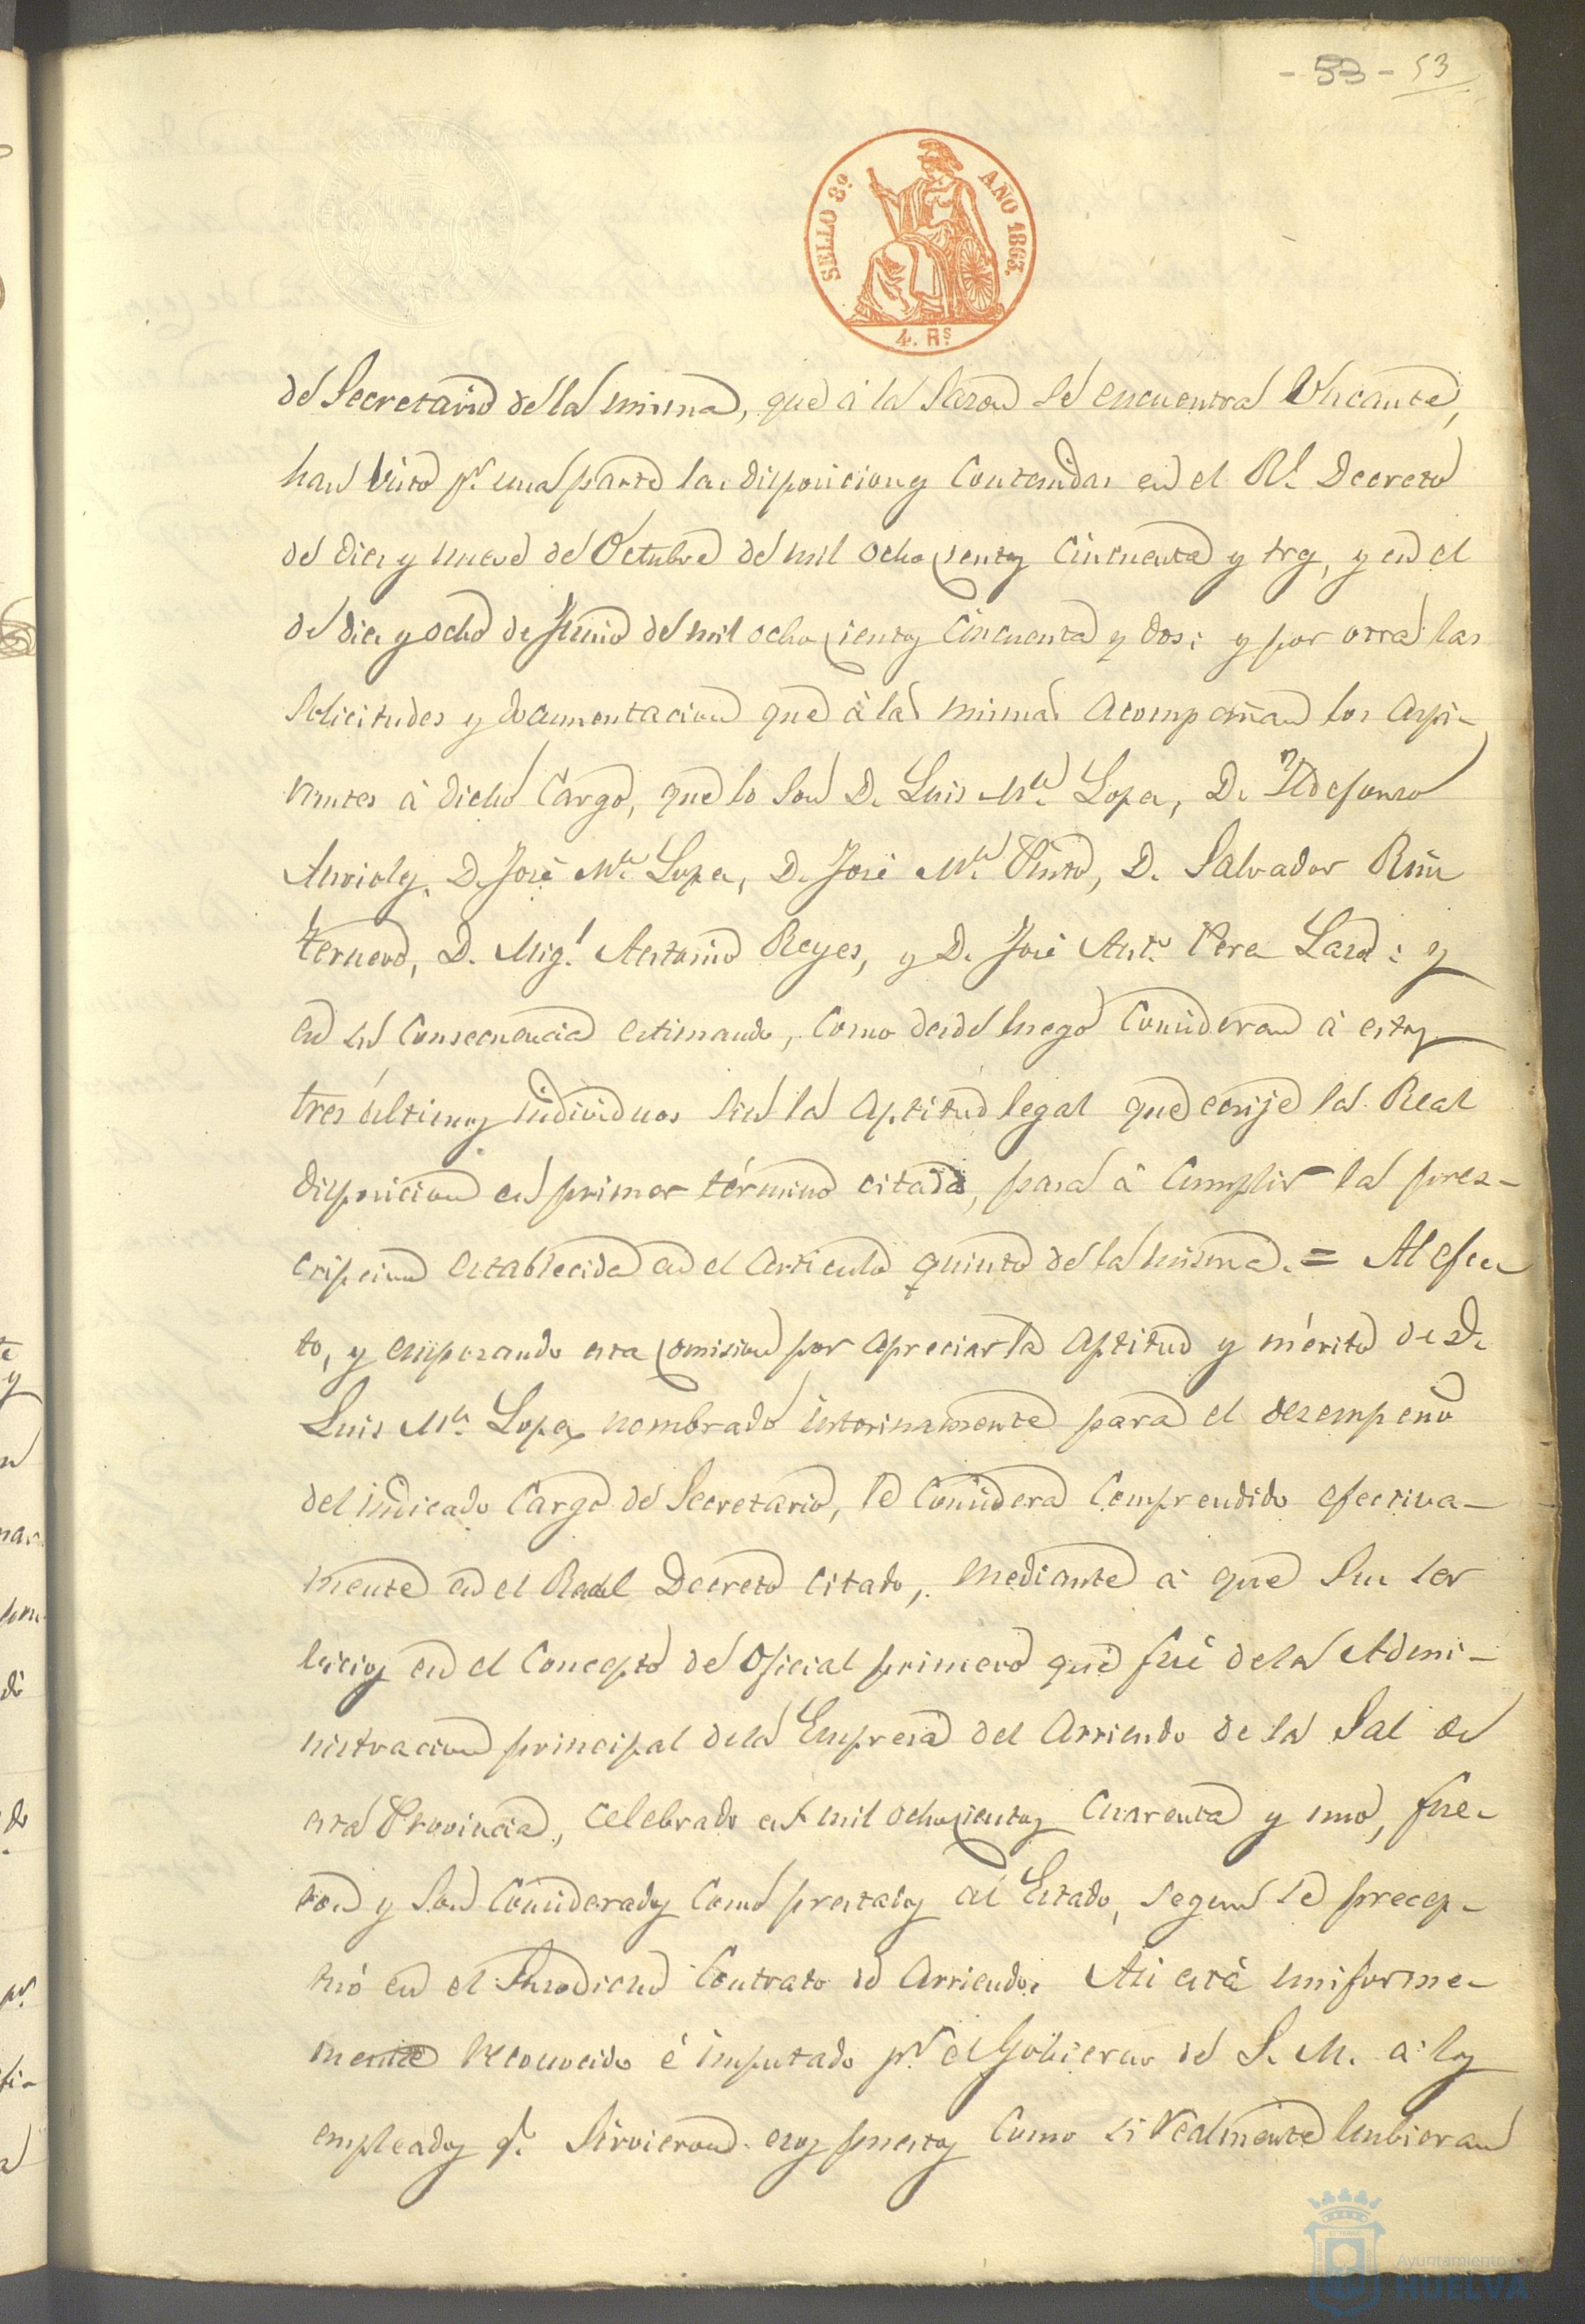 - 53 - 53
SELLO 8º AÑO 1863.
4. Rs.
de Secretario de la misma, que á la sazon se encuentra Vacante,
han visto pr. una parte las disposiciones Contenidas en el Rl. Decreto
de diez y nueve de Octubre de mil ochocientos Cincuenta y tres, y en el
de diez y ocho de Junio de mil ochocientos Cincuenta y dos; y por otra las
Solicitudes y documentacion que á las mismas acompañan los aspi-
rantes á dicho Cargo, que lo son D. Luis Ma. Lopez, D. Ildefonso
D. José Ma. Lopez, D. José Ma. Pinto, D. Salvador
D. Migl. Antonio Reyes, y D. José Anto. Perez Lazo; y
en su Consecuencia estimando, como desde luego Consideran á estos
tres últimos individuos sin la aptitud legal que exije la Real
disposicion en primer término citada, pasa á Cumplir la pres-
cripcion establecida en el articulo quinto de la misma. = Al efec-
to, y empezando esta Comision por apreciar la aptitud y mérito de D.
Luis Ma. Lopez nombrado interinamente para el desempeño
del indicado Cargo de Secretario, le Considera Comprendido efectiva-
mente en el Real Decreto citado, mediante á que Sus ser
vicios en el Concepto de Oficial primero que fué de la Admi-
nistracion principal de la Empresa del Arriendo de la Sal de
esta Provincia, celebrado en mil ochocientos Cuarenta y uno, fue-
ron y son Considerados Como prestados al Estado, segun se precep-
tuó en el Susodicho Contrato de Arriendo. Asi está uniforme-
mente reconocido é imputado pr. el Gobierno de S. M. á los
empleados q. Sirvieron esos puestos Como si realmente hubieran
Ayuntamiento de
HUELVA